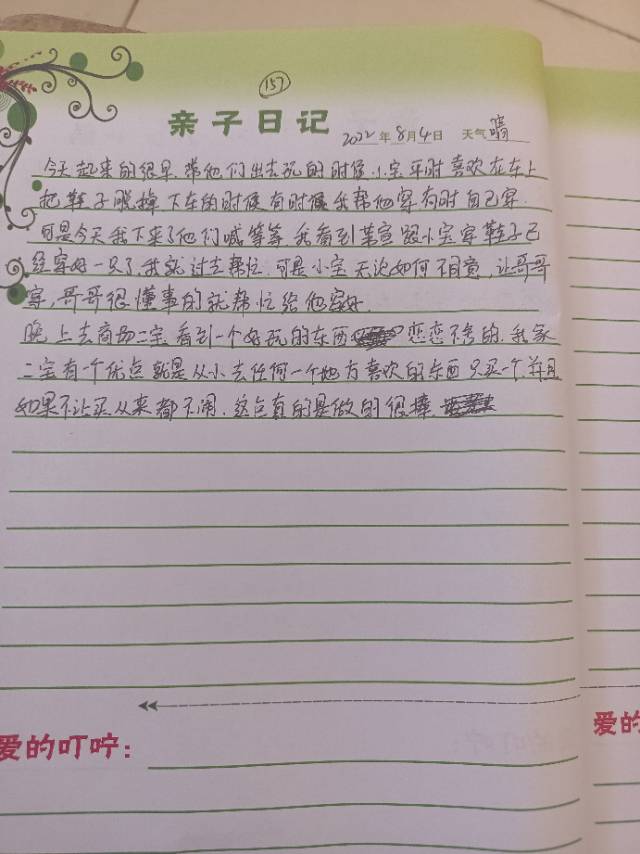 157
亲子日记
2022年8月4日 天气 晴
今天起来的很早.带他们出去玩的时候.小宝平时喜欢在车上
把鞋子脱掉下车的时候有时候我帮他穿有时自己穿.
可是今天我下来了他们喊等等.我看到某宣跟小宝穿鞋子已
经穿好一只了,我就过去帮忙.可是小宝无论如何不同意,让哥哥
穿,哥哥很懂事的就帮忙给他穿好.
晚上去商场二宝看到一个好玩的东西恋恋不舍的.我家
二宝有一个优点就是从小去任何一个地方喜欢的东西只买一个.并且
如果不让买从来都不闹.这点真的是做的很棒.
爱的叮咛:
爱的